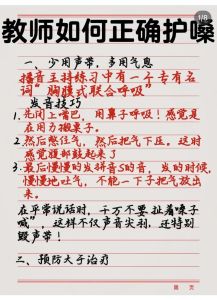 1/8
教师如何正确护嗓
一、少用声带,多用气息
播音主持练习中有一个专有名
词“胸腹式联合呼吸”
发音技巧
1.先闭上嘴巴,用鼻子呼吸!感觉是
在用力搬桌子。
2.然后憋住气,然后把气下压。这时
感觉腹部鼓起来了
3.最后慢慢的发拼音S的音,发的时候,
慢慢地吐气,不能一下子把气放出
来。
在平常说话时,千万不要扯着嗓子
喊”,这样不仅声音尖刹,还特别
毁声带!
二、预防大于治疗
第 页